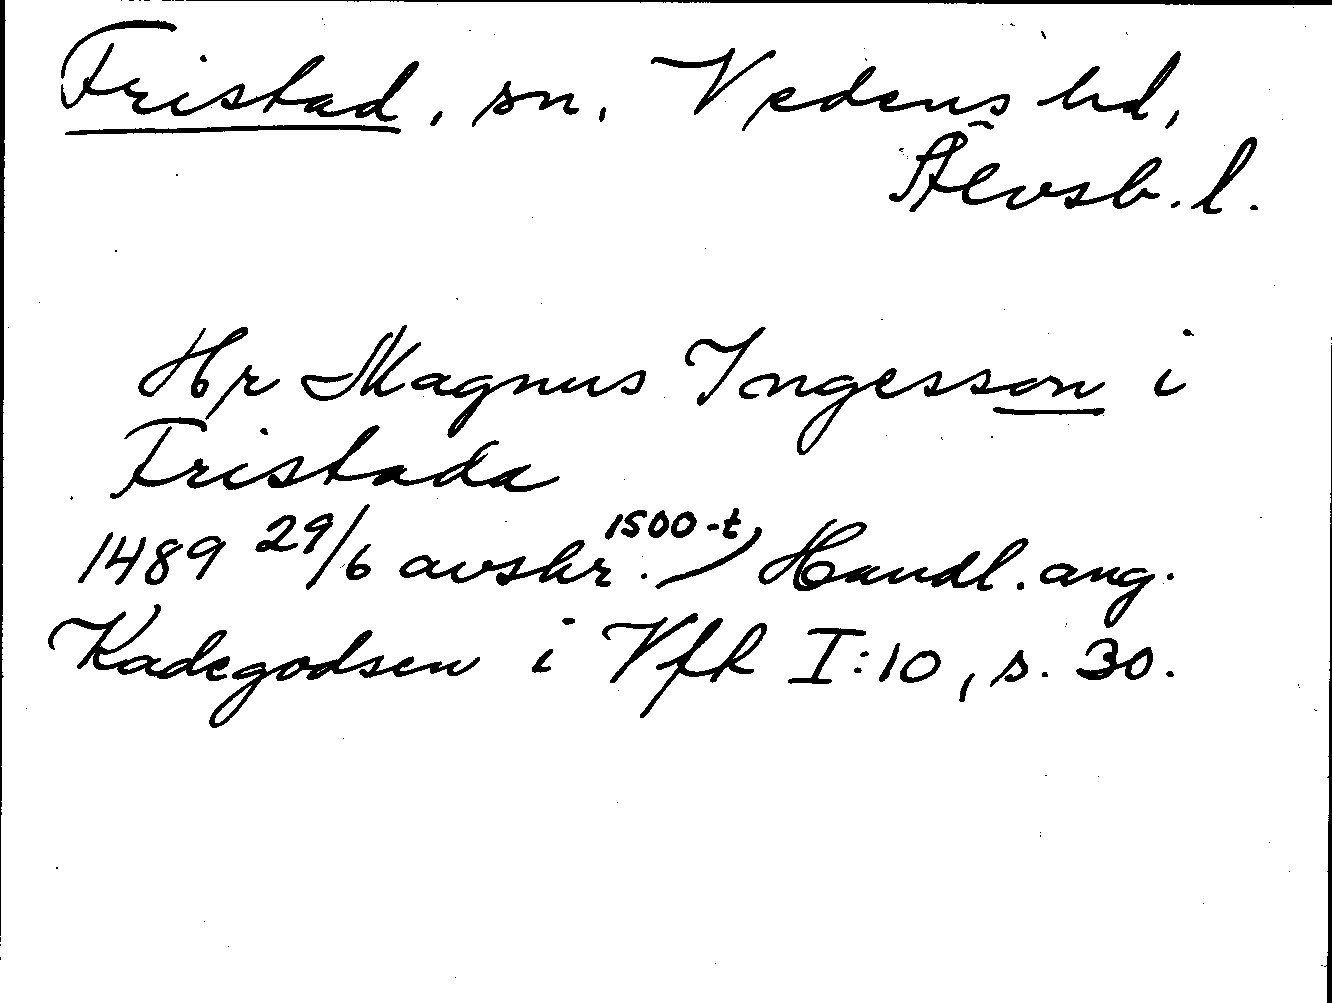 Fristad, sn, Vedens hd,
Älvsb. l.
Hr Magnus Ingesson i
Fristada
1489 29/6 avskr. 1500-t, Handl. ang.
Kadegodsen i Vfh I:10, s. 30.